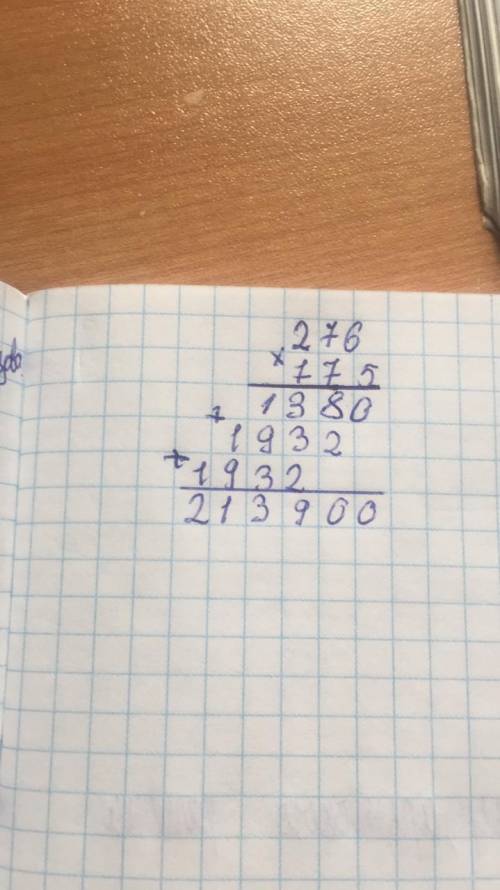 276
× 775
+ 1380
1932
+ 1932
213900